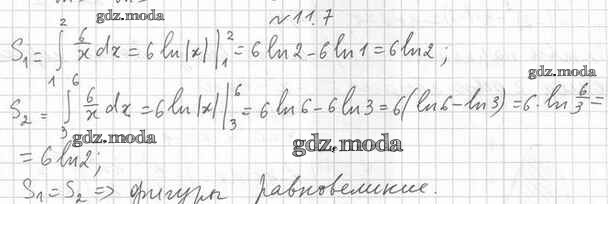 № 11.7
gdz.moda
S₁ = ∫₁² 6/x dx = 6 ln|x| |₁² = 6 ln 2 - 6 ln 1 = 6 ln 2;
gdz.moda
S₂ = ∫₃⁶ 6/x dx = 6 ln|x| |₃⁶ = 6 ln 6 - 6 ln 3 = 6(ln 6 - ln 3) = 6 · ln 6/3 =
gdz.moda
gdz.moda
= 6 ln 2;
S₁ = S₂ => фигуры равновеликие.